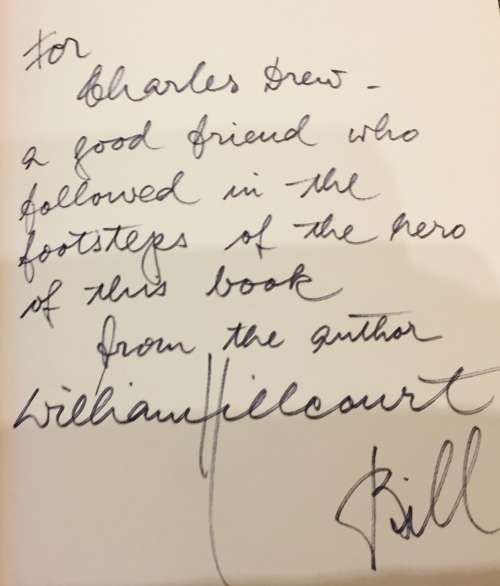 For
Charles Drew -
a good friend who
followed in the
footsteps of the hero
of this book
from the author
William Hillcourt
Bill